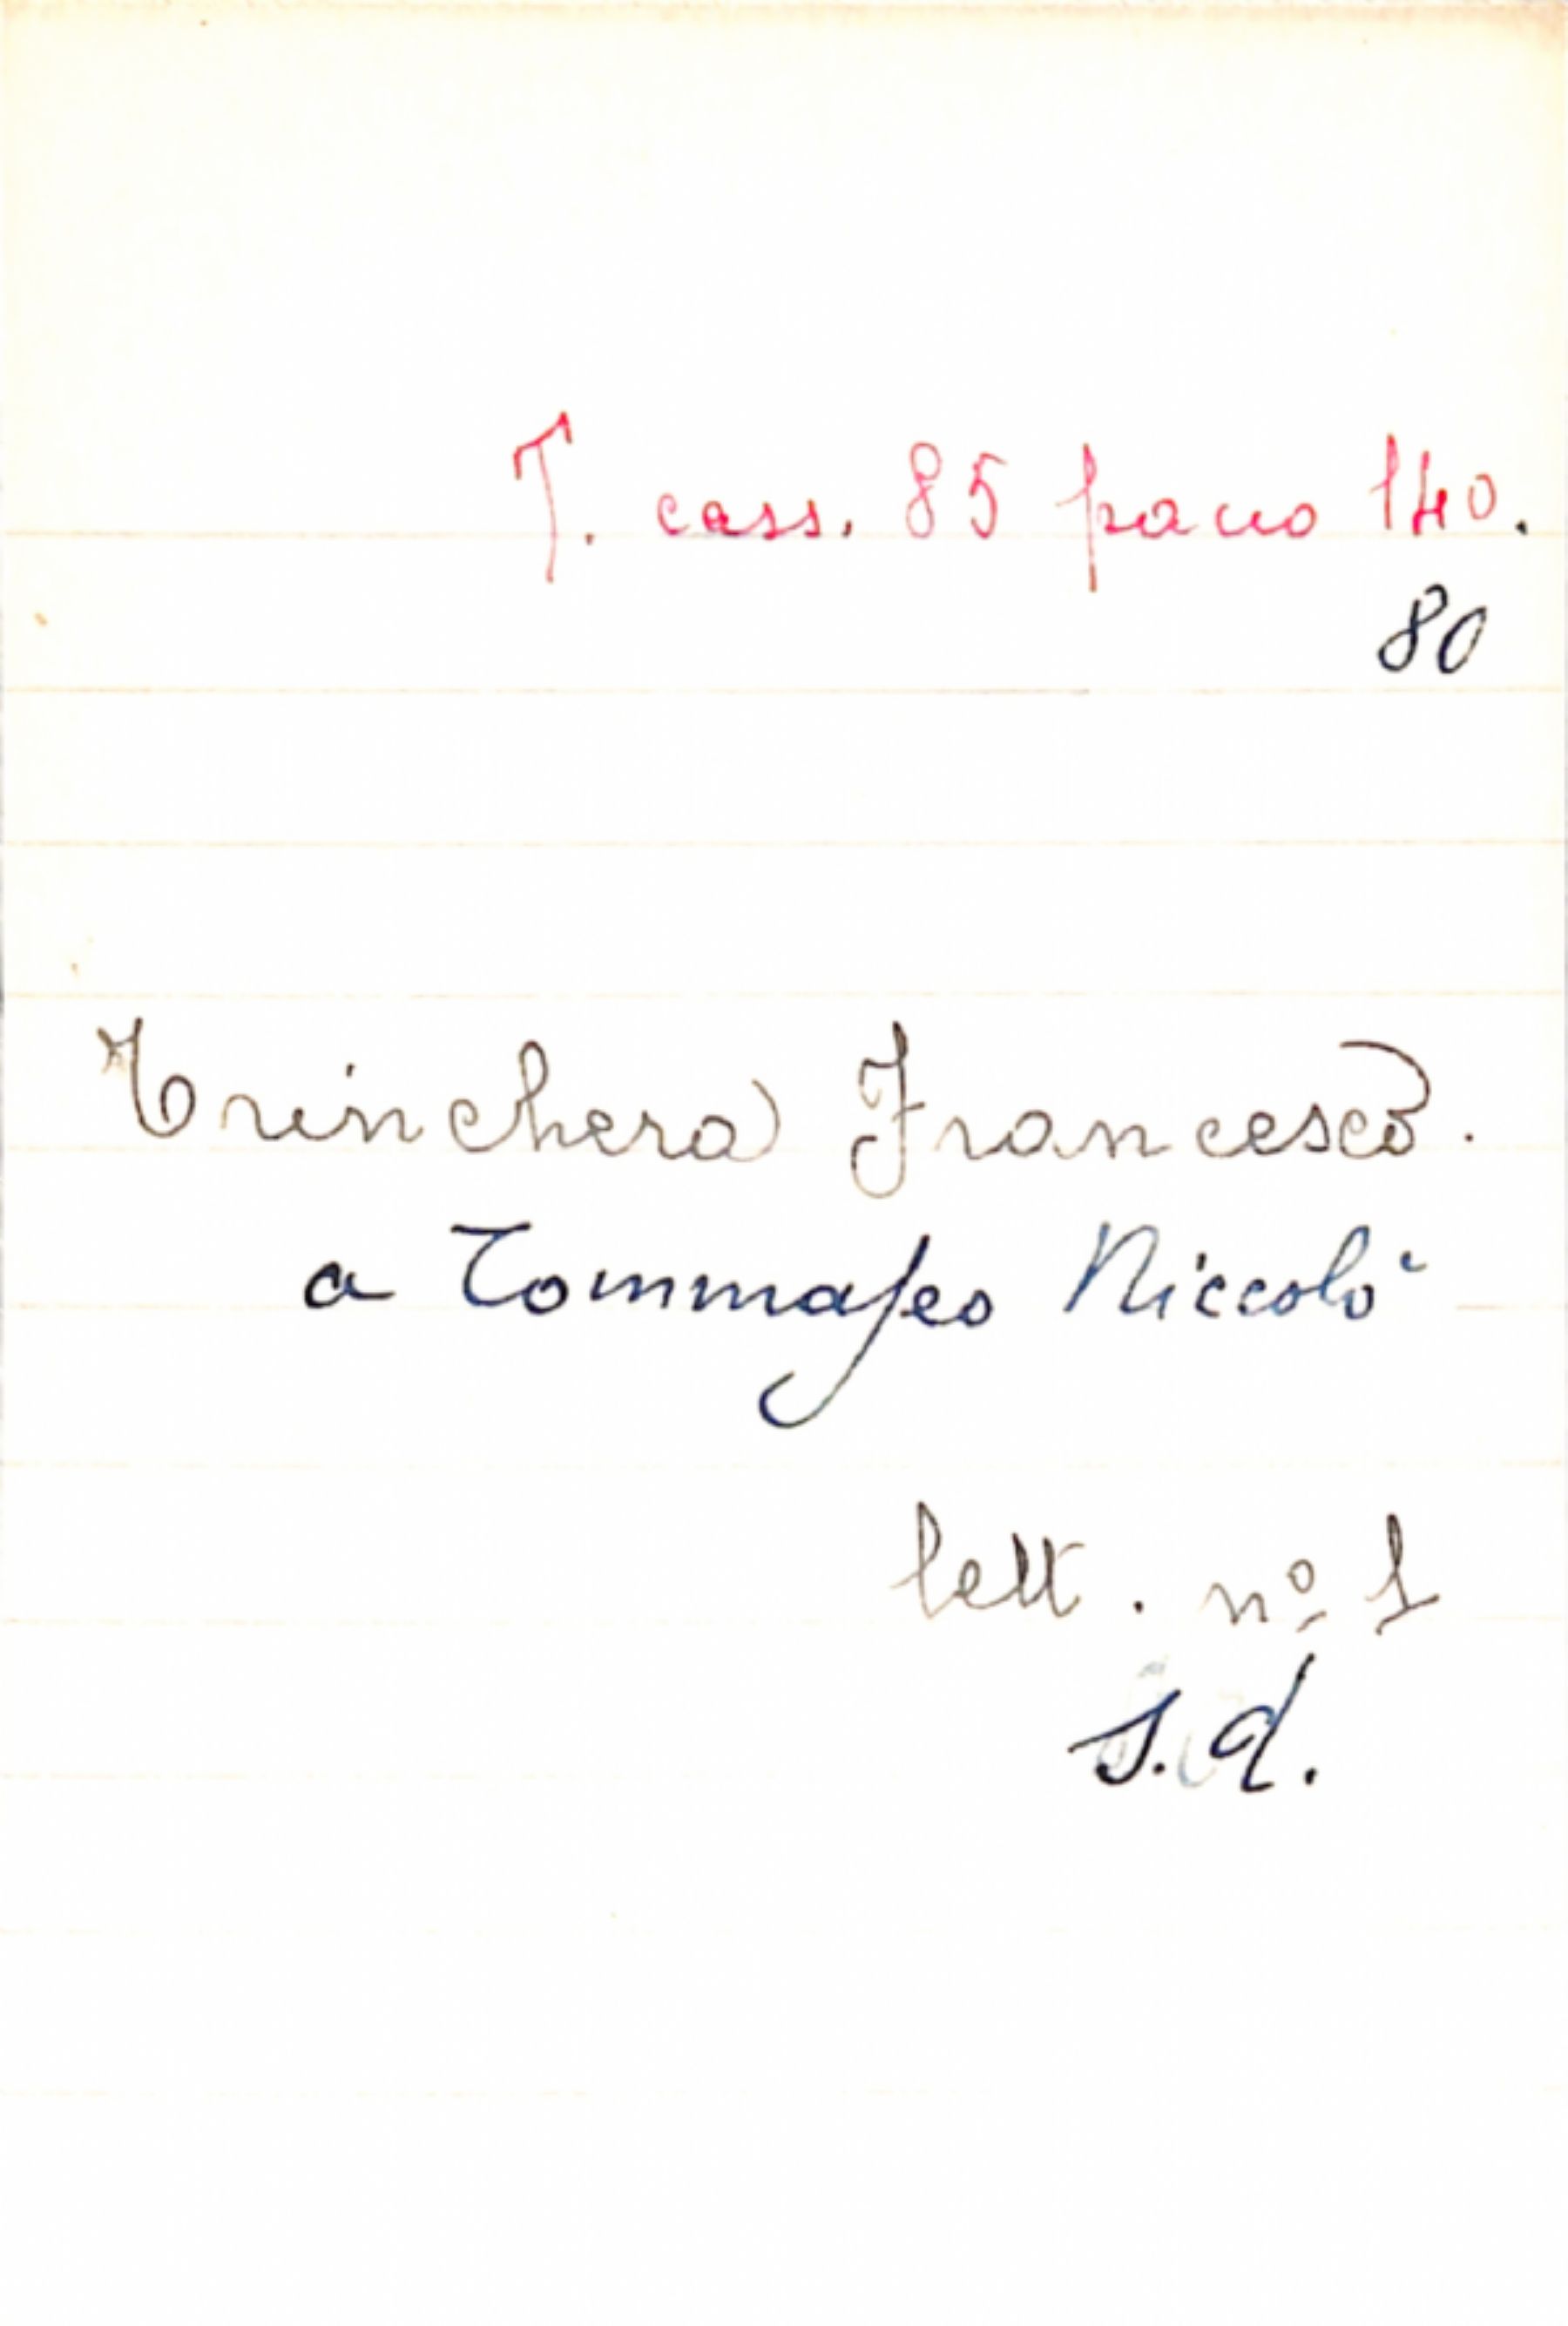 T. cass. 85 pacco 140.
80
Trinchera Francesco.
a Tommaseo Niccolò
lett. nº 1
s.d.